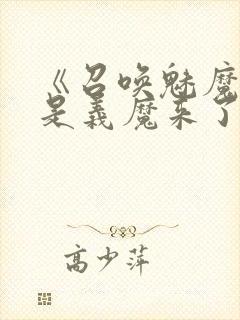 《召唤魅魔
是义魔来了
高少萍